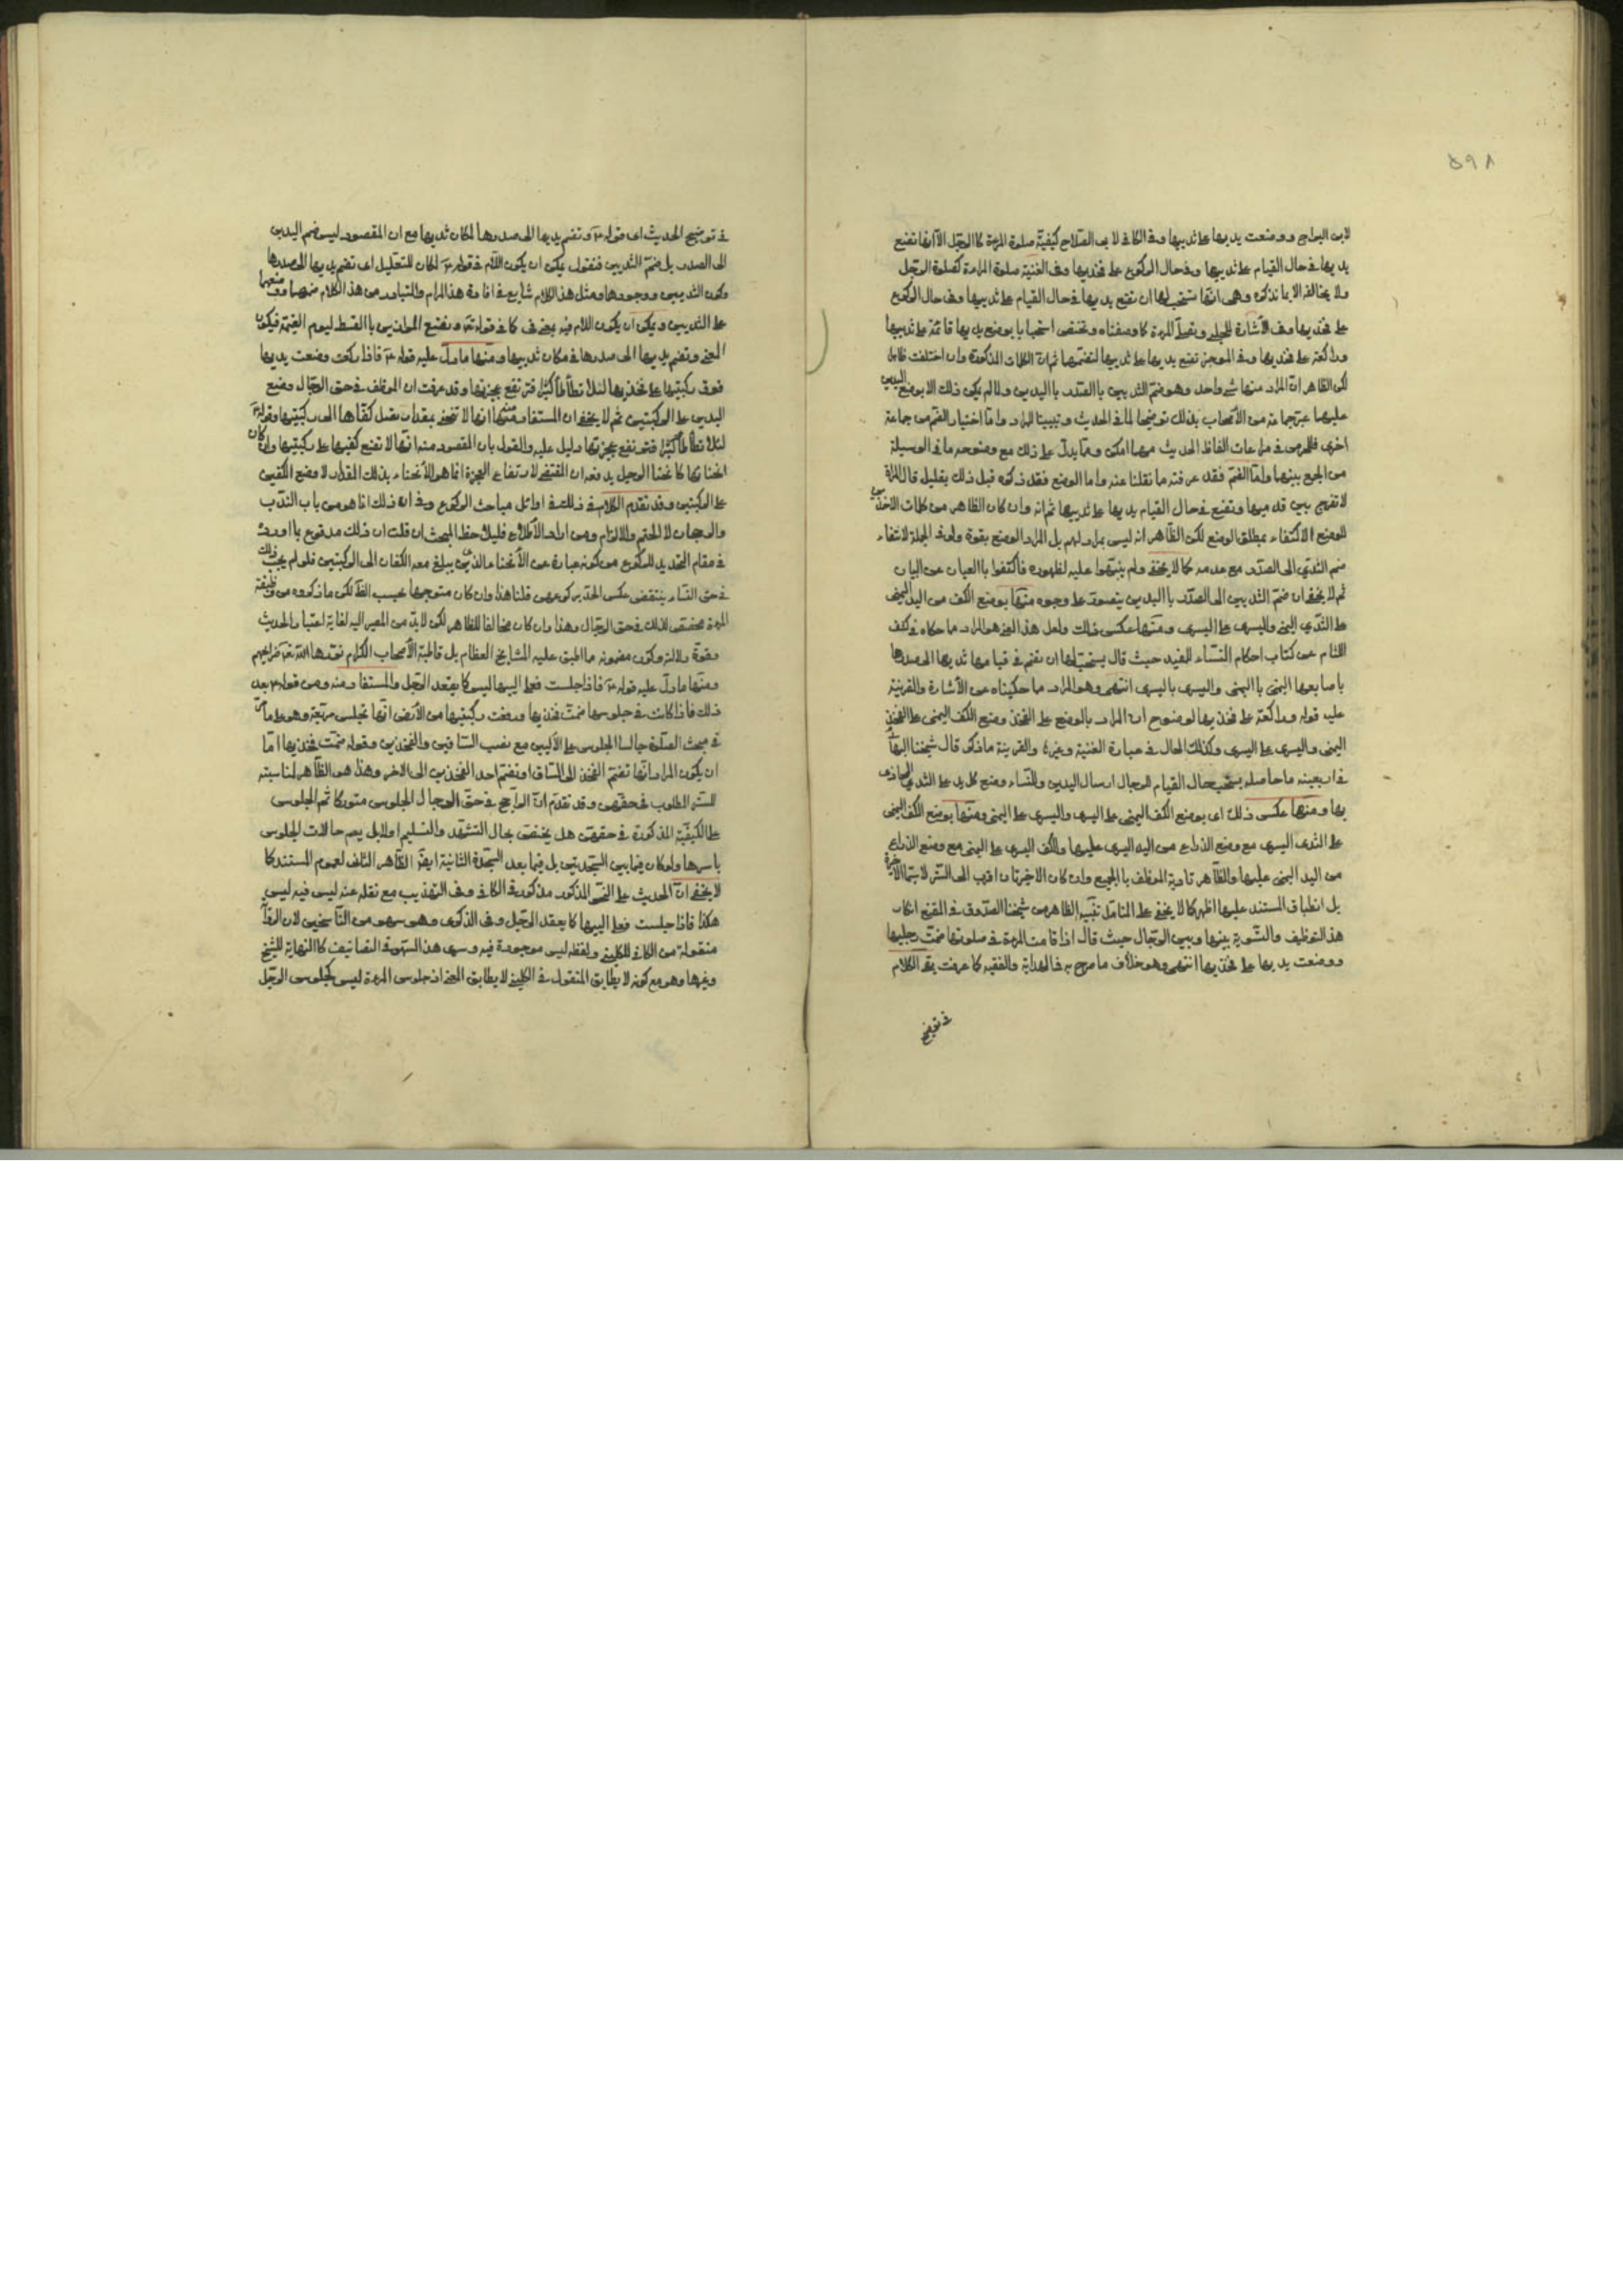 ۵۹۸
لابن البراج ووضعت يديها على ثدييها وفي الكافي لابي الصلاح كيفية صلوة المرءة كالرجل الا انها تضع
يديها في حال القيام على ثدييها وفي حال الركوع على فخذيها وفي الغنية صلوة المراءة كصلوة الرجل
ولا يخالفه الا بما نذكره وهي انها تستحب لها ان تضع يديها في حال القيام على ثدييها وفي حال الركوع
على فخذيها وفي الاشارة للحلبي وتصلي المرءة كما وصفناه وتختص استحبابا بوضع يديها قائمة على ثدييها
وراكعة على فخذيها وفي الموجز تضع يديها على ثدييها لتضمهما ثم ان الكلمات المذكورة وان اختلفت
لكن الظاهر ان المراد منها شيء واحد وهو ضم الثديين بالصدر باليدين ولما لم يكن ذلك الا بوضع اليدين
عليهما عبر جماعة من الاصحاب بذلك توضيحا لما في الحديث وتبيينا للمراد واما اختيار الضم من جماعة
اخرى فللحرص في مراعات الفاظ الحديث مهما امكن ومما يدل على ذلك مع وضوحه ما في الوسيلة
من الجمع بينهما واما الضم فقد عرفته ما نقلنا عنه واما الوضع فقد ذكره قبل ذلك بقليل قال المراة
لا تفرج بين قدميها وتضع في حال القيام يديها على ثدييها ثم انه وان كان الظاهر من كلمات الاخذين
للوضع الاكتفاء بمطلق الوضع لكن الظاهر انه ليس بمراد لهم بل المراد الوضع بقوة ولو في الجملة لانتفاء
ضم الثدي الى الصدر مع عدمه كما لا يخفى ولم ينبهوا عليه لظهوره فاكتفوا بالعيان عن البيان
ثم لا يخفى ان ضم الثديين الى الصدر باليدين يتصور على وجوه منها بوضع الكف من اليد اليمنى
على الثدي اليمنى واليسرى على اليسرى ومنها عكس ذلك ولعل هذا المعنى هو المراد مما حكاه في كشف
اللثام عن كتاب احكام النساء للمفيد حيث قال يستحب لها ان تضم في قيامها ثدييها الى صدرها
باصابعها اليمنى باليمنى واليسرى باليسرى انتهى وهو المراد مما حكيناه عن الاشارة والقرينة
عليه قوله وراكعة على فخذيها لوضوح ان المراد بالوضع على الفخذ وضع الكف اليمنى على الفخذ
اليمنى واليسرى على اليسرى وكذلك الحال في عبارة الغنية وغيره والقرينة ما ذكر قال شيخنا البهائي
في اربعينه ما حاصله يستحب حال القيام للرجال ارسال اليدين وللنساء وضع كل يد على الثدي المحاذي
بها ومنها عكس ذلك اي بوضع الكف اليمنى على اليسرى واليسرى على اليمنى ومنها بوضع الكف اليمنى
على الثدي اليسرى مع وضع الذراع من اليد اليسرى عليها والكف اليسرى على اليمنى مع وضع الذراع
من اليد اليمنى عليها والظاهر تادية الموظف بالجميع وان كان الاخيرتان اقرب الى الستر لا سيما الاخيرة
بل انطباق المستند عليها اظهر كما لا يخفى على المتامل تنبيه الظاهر من شيخنا الصدوق في المقنع انكار
هذا التوظيف والتسوية بينها وبين الرجال حيث قال اذا قامت المرءة في صلوتها ضمت رجليها
ووضعت يديها على فخذيها انتهى وهو خلاف ما صرح به في الهداية والفقيه كما عرفت بقي الكلام
في توضيح
في توضيح الحديث اي قوله ع وتضم يديها الى صدرها لمكان ثدييها مع ان المقصود ليس ضم اليدين
الى الصدر بل ضم الثديين فنقول يمكن ان يكون اللام في قوله ع لمكان للتعليل اي تضم يديها الى صدرها
لكون الثديين ووجودها ومثل هذا الكلام شايع في افادة هذا المرام والمتبادر من هذا الكلام ضمهما ووضعهما
على الثديين ويمكن ان يكون اللام فيه بمعنى في كما في قوله تع ونضع الموازين بالقسط ليوم القيمة فيكون
المعنى وتضم يديها الى صدرها في مكان ثدييها ومنها ما دل عليه قوله ع فاذا ركعت وضعت يديها
فوق ركبتيها على فخذيها لئلا تطأطأ كثيرا فترتفع عجيزتها وقد عرفت ان الموظف في حق الرجال وضع
اليدين على الركبتين ثم لا يخفى ان المستفاد منها انها لا تنحني بمقدار يصل كفاها الى ركبتيها وقوله ع
لئلا تطأطأ كثيرا فترتفع عجيزتها دليل عليه والقول بان المقصود منه انها لا تضع كفيها على ركبتيها وان كان
انحنائها كانحناء الرجل يدفعه ان المقتضي لارتفاع العجيزة انما هو الانحناء بذلك المقدار لا وضع الكفين
على الركبتين وقد تقدم الكلام في ذلك في اوائل مباحث الركوع وفي انه ذلك انما هو من باب الندب
والرجحان لا الحتم والالزام ومن اراد الاطلاع فليلاحظ المبحث ان قلت ان ذلك مدفوع بما ورد
في مقام التحديد للركوع من كونه عبارة عن الانحناء الذي يبلغ معه الكفان الى الركبتين فلو لم يجب ذلك
في حق النساء ينتقض عكس الحد بركوعهن قلنا هذا وان كان متوجها بحسب الظاهر لكن ما ذكروه من وظيفة
المرءة مختص لذلك في حق الرجال وهذا وان كان مخالفا للظاهر لكن لا بد من المصير اليه لغاية اعتبار الحديث
وقوة دلالته وكون مضمونه مما اطبق عليه المشايخ العظام بل قاطبة الاصحاب الكرام
ومنها ما دل عليه قوله ع فاذا جلست فعلى اليتيها ليس كما يقعد الرجل والمستفاد منه ومن قوله ع بعد
ذلك فاذا كانت في جلوسها ضمت فخذيها ورفعت ركبتيها من الارض انها تجلس مرتفعة وهو على ما مر
في مبحث الصلوة جالسا الجلوس على الاليين مع نصب الساقين والفخذين وقوله ضمت فخذيها اما
ان يكون المراد انها تضم الفخذ الى الساق او تضم احد الفخذين الى الاخر وهذا هو الظاهر لمناسبته
للستر المطلوب في حقهن وقد تقدم ان الراجح في حق الرجال الجلوس متوركا ثم الجلوس
على الكيفية المذكورة في حقهن هل يختص بحال التشهد والتسليم او لا بل يعم حالات الجلوس
باسرها ولو كان فيما بين السجدتين بل فيما بعد السجدة الثانية ايضا الظاهر الثاني لعموم المستند كما
لا يخفى ان الحديث على النحو المذكور مذكور في الكافي وفي التهذيب مع نقله عنه ليس فيه ليس
هكذا فاذا جلست فعلى اليتيها كما يقعد الرجل وفي الذكرى وهو سهو من الناسخين لان الرواية
منقولة من الكافي للكليني ولفظ ليس موجودة فيه وسرى هذا السهو في التصانيف كالنهاية للشيخ
وغيرها وهو مع كونه لا يطابق المنقول في الكليني لا يطابق المعنى اذ جلوس المرءة ليس كجلوس الرجل